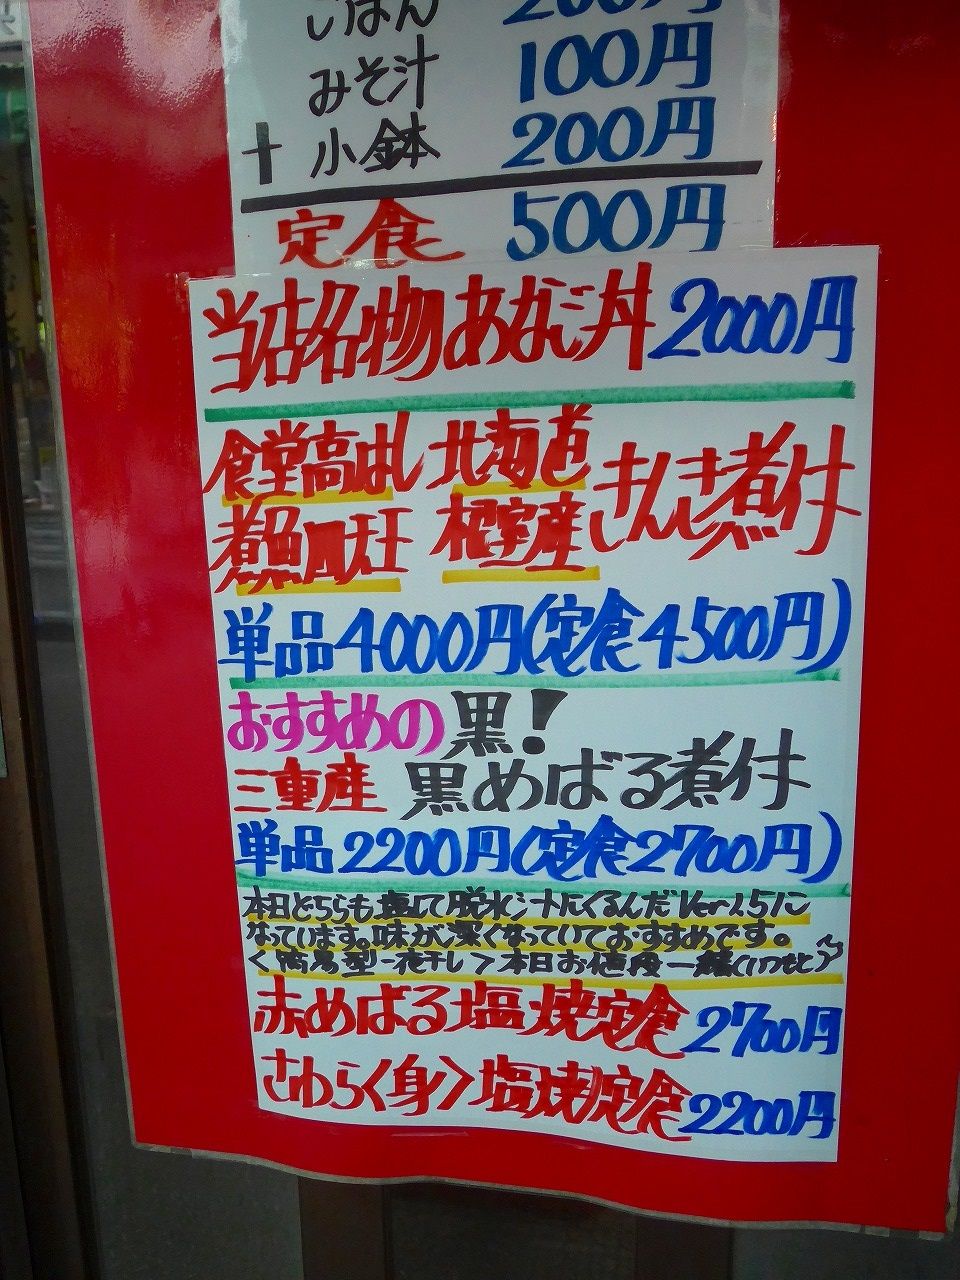 ごはん 200円
みそ汁 100円
+ 小鉢 200円
定食 500円
当店名物あなご丼 2000円
食堂高はし 北海道
煮魚四天王 根室産 きんき煮付
単品4000円(定食4500円)
おすすめの黒!
三重産 黒めばる煮付
単品2200円(定食2700円)
本日どちらも塩して脱水シートにくるんだVer1.5に
なっています。味が深くなっていておすすめです。
<簡易型一夜干し>本日お値段一緒(いつもと)
赤めばる塩焼定食 2700円
さわら<身>塩焼定食 2200円